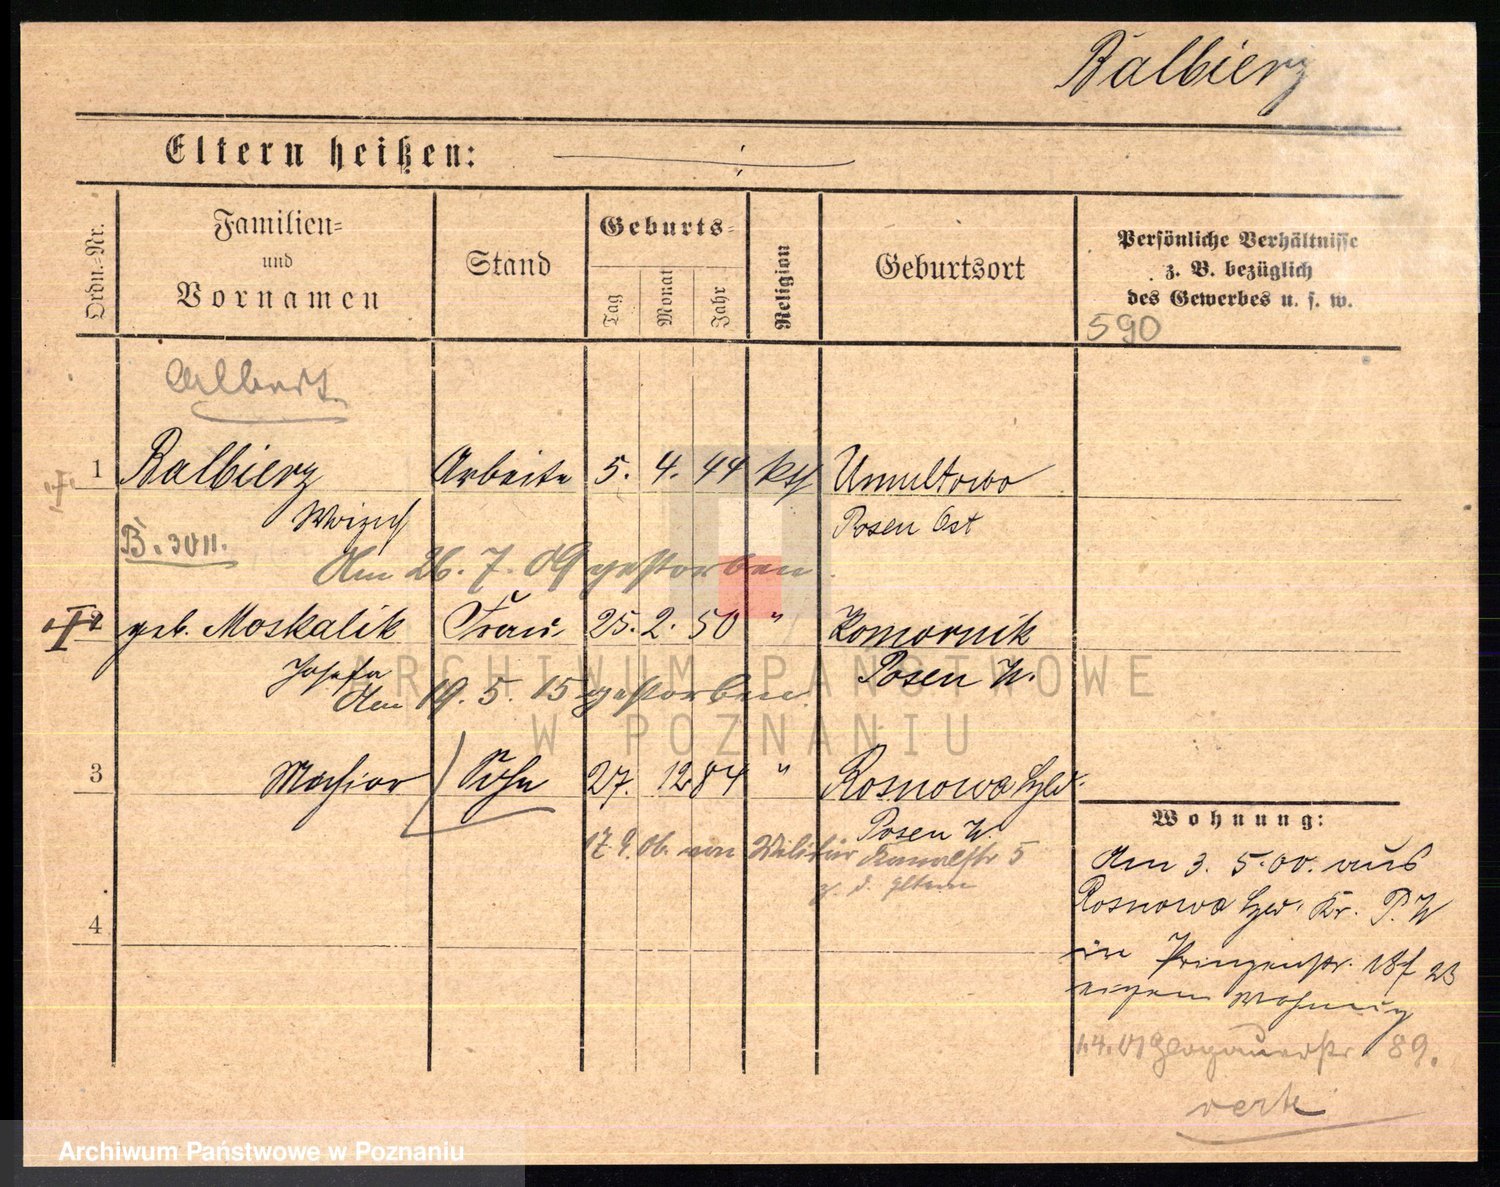 Balbierz
Eltern heißen:
Ordn.-Nr.
Familien-
und
Vornamen
Stand
Geburts-
Tag
Monat
Jahr
Religion
Geburtsort
Persönliche Verhältnisse
z. B. bezüglich
des Gewerbes u. s. w.
590
Albert
1 Balbierz Arbeiter 5. 4. 44 kth Umultowo
Posen Ost
Am 26. 7. 09 gestorben
2 geb. Moskalik Frau 25. 2. 50 " Komornik
Josefa Posen W.
Am 19. 5. 15 gestorben
3 Sohn 27. 12 84 " Rosnowo
Posen W.
17. 9. 06. von Militär 5
z. d. Eltern
4
Wohnung:
Am 3. 5. 00. aus
Rosnowo Kr. P. W
in Prinzenstr. 23
eigene Wohnung
Glogauerstr. 89.
verte
ARCHIWUM PAŃSTWOWE
W POZNANIU
Archiwum Państwowe w Poznaniu